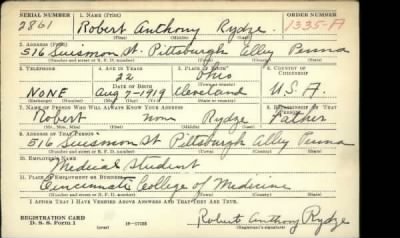 SERIAL NUMBER 1. NAME (Print) ORDER NUMBER
2861 Robert Anthony Rydze 1335-A
(First) (Middle) (Last)
2. ADDRESS (Print)
516 Suismon St. Pittsburgh Alley Penna
(Number and street or R. F. D. number) (Town) (County) (State)
3. TELEPHONE 4. AGE IN YEARS 5. PLACE OF BIRTH 6. COUNTRY OF CITIZENSHIP
22 Ohio
DATE OF BIRTH
NONE Aug 7-1919 Cleveland U.S.A.
7. NAME OF PERSON WHO WILL ALWAYS KNOW YOUR ADDRESS 8. RELATIONSHIP OF THAT PERSON
Robert None Rydze Father
(Mr., Mrs., Miss) (First) (Middle) (Last)
9. ADDRESS OF THAT PERSON
516 Suismon St Pittsburgh Alley Penna
(Number and street or R. F. D. number) (Town) (County) (State)
10. EMPLOYER'S NAME
Medical Student
11. PLACE OF EMPLOYMENT OR BUSINESS
Cincinnati College of Medicine
(Number and street or R. F. D. number) (Town) (County) (State)
I AFFIRM THAT I HAVE VERIFIED ABOVE ANSWERS AND THAT THEY ARE TRUE.
REGISTRATION CARD
D. S. S. Form 1 Robert Anthony Rydze
(over)